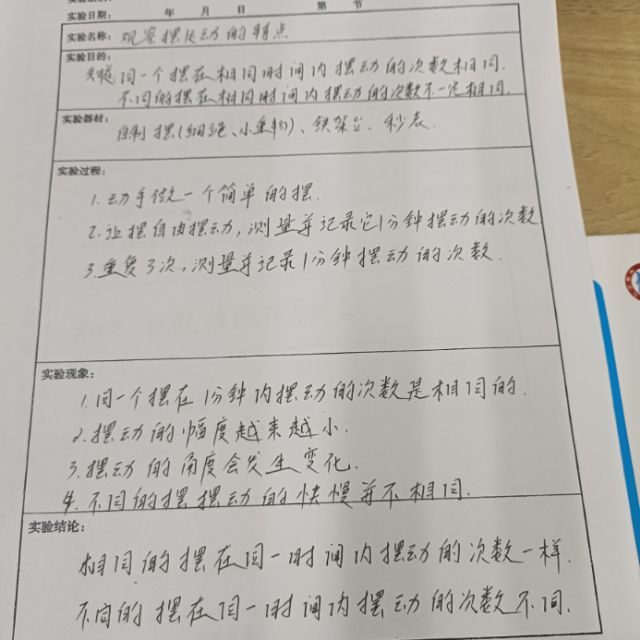 实验日期： 年 月 日 第 节
实验名称：观察摆运动的特点
实验目的：
发现同一个摆在相同时间内摆动的次数相同.
不同的摆在相同时间内摆动的次数不一定相同.
实验器材：自制摆(细绳、小重物)、铁架台、秒表.
实验过程：
1.动手做一个简单的摆.
2.让摆自由摆动,测量并记录它1分钟摆动的次数
3.重复3次,测量并记录1分钟摆动的次数.
实验现象：
1.同一个摆在1分钟内摆动的次数是相同的.
2.摆动的幅度越来越小.
3.摆动的角度会发生变化.
4.不同的摆摆动的快慢并不相同.
实验结论：
相同的摆在同一时间内摆动的次数一样.
不同的摆在同一时间内摆动的次数不同.